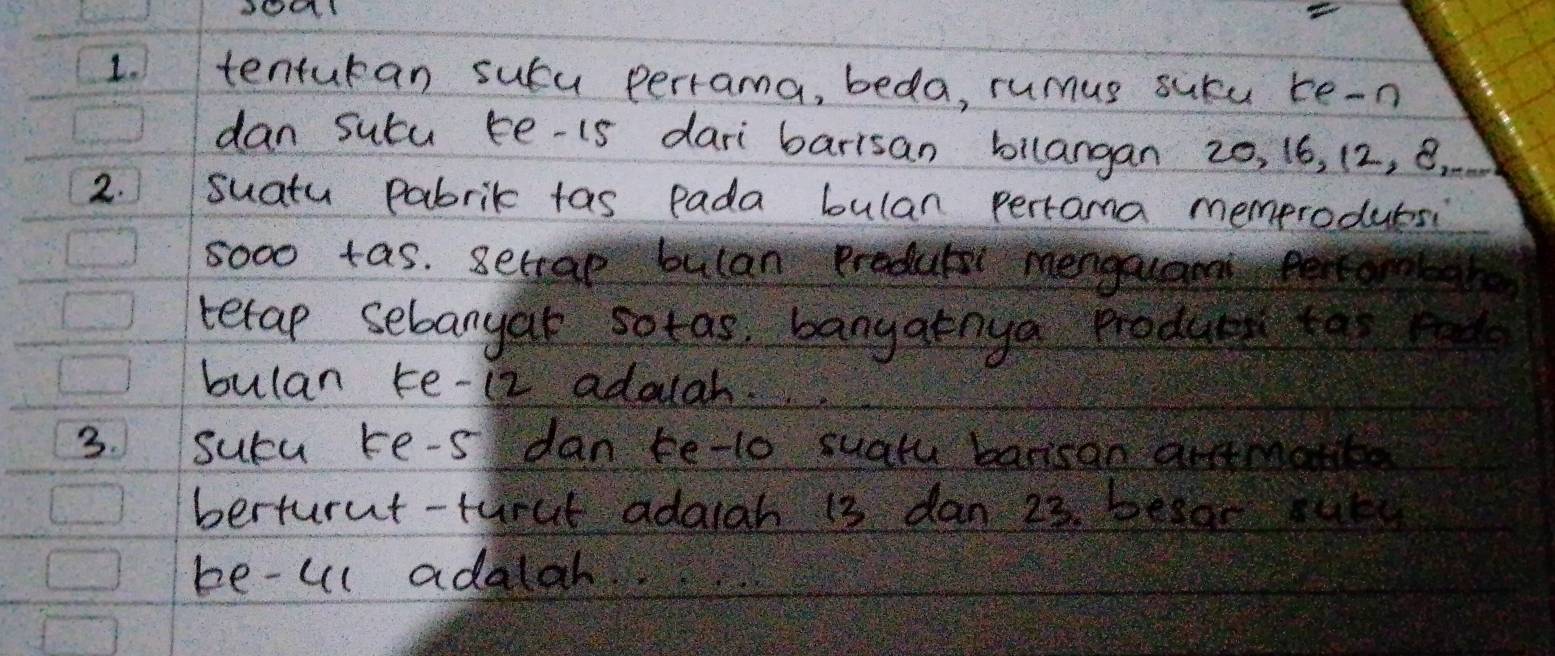 soal
1. tentukan suku pertama, beda, rumus suku ke-n
dan suku ke-15 dari barisan bilangan 20, 16, 12, 8,.....
2. suatu pabrik tas pada bulan pertama memproduksi
5000 tas. setiap bulan produksi mengalami pertambahan
tetap sebanyak 50 tas. banyaknya produksi tas pada
bulan ke-12 adalah....
3. suku ke-5 dan ke-10 suatu barisan aritmatika
berturut-turut adalah 13 dan 23. besar suku
ke-41 adalah......